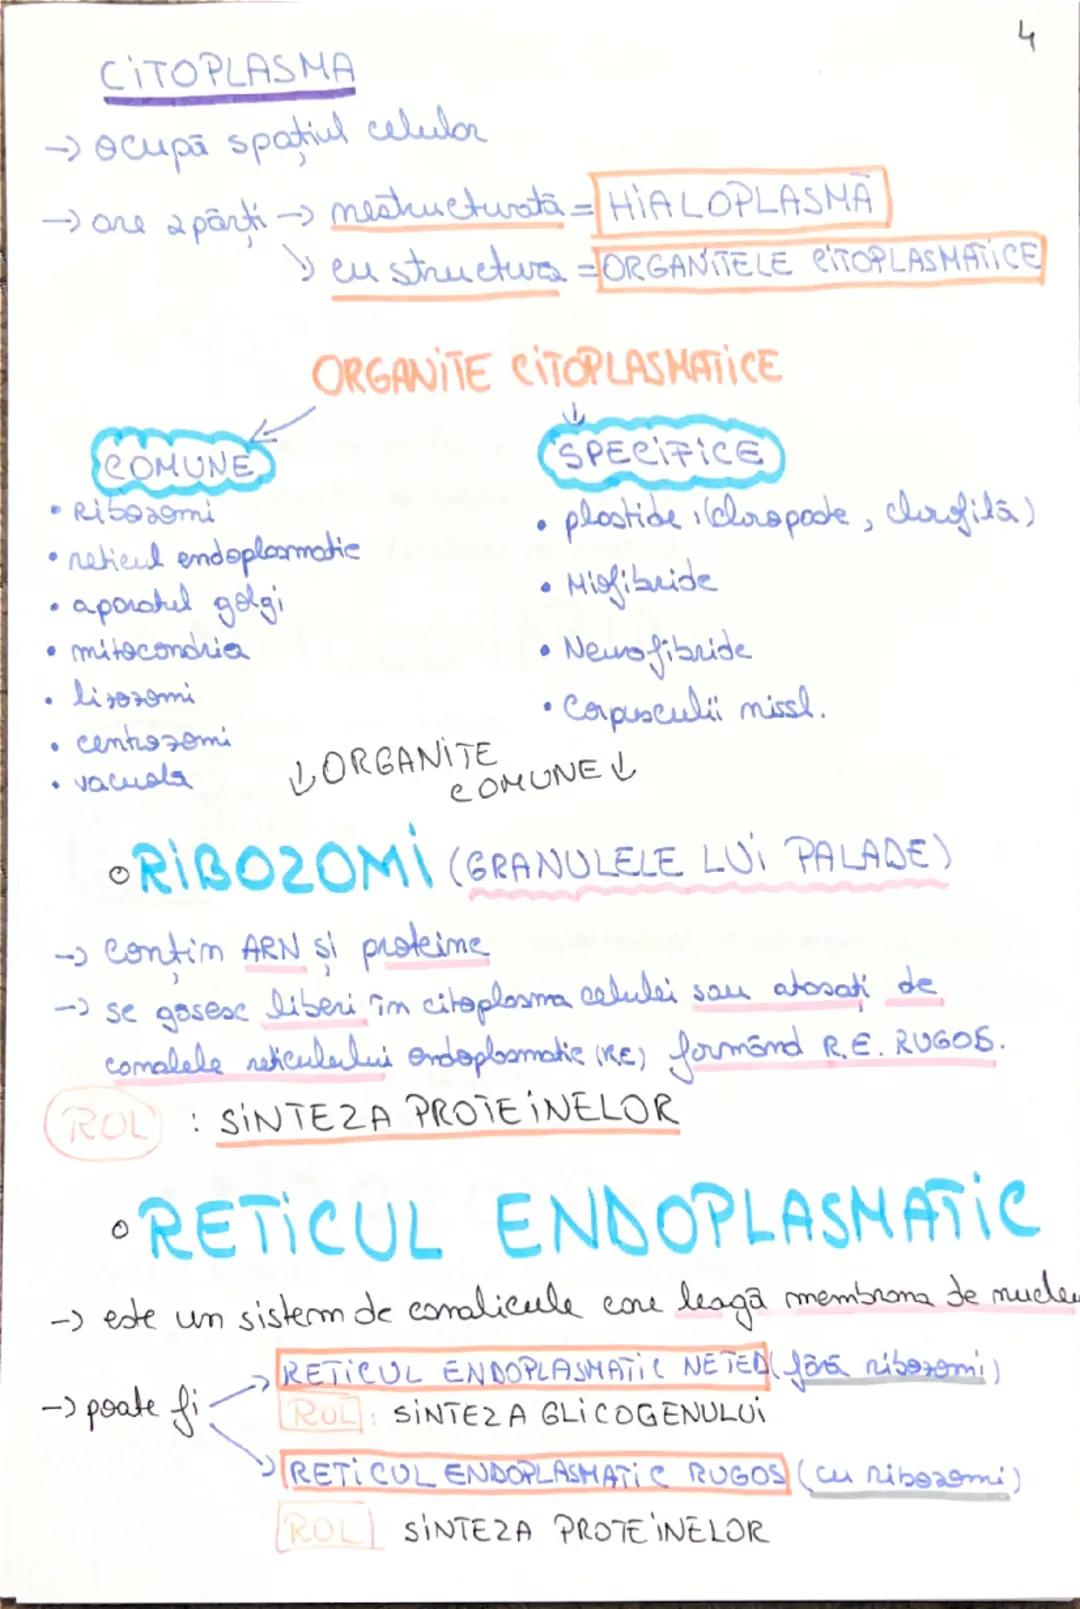 4
CITOPLASMA
→ ocupă spațiul celular
→ are 2 părți → nestructurată = HIALOPLASMĂ
↘ cu structura = ORGANITELE CITOPLASMATICE
ORGANITE CITOPLASMATICE
COMUNE
• Ribozomi
• reticul endoplasmatic
• aparatul golgi
• mitocondria
• lizozomi
• centrozomi
• vacuola
SPECIFICE
• plastide (cloropaste, clorofilă)
• Miofibride
• Neurofibride
• Corpusculii nissl.
↓ ORGANITE
COMUNE ↓
• RIBOZOMI (GRANULELE LUI PALADE)
→ Conțin ARN și proteine
→ se găsesc liberi în citoplasma celulei sau atașați de
canalele reticulului endoplasmatic (RE) formând R.E. RUGOS.
ROL : SINTEZA PROTEINELOR
• RETICUL ENDOPLASMATIC
→ este un sistem de canalicule care leagă membrana de nucleu
→ poate fi
→ RETICUL ENDOPLASMATIC NETED (fără ribozomi)
ROL : SINTEZA GLICOGENULUI
→ RETICUL ENDOPLASMATIC RUGOS (cu ribozomi)
ROL SINTEZA PROTEINELOR